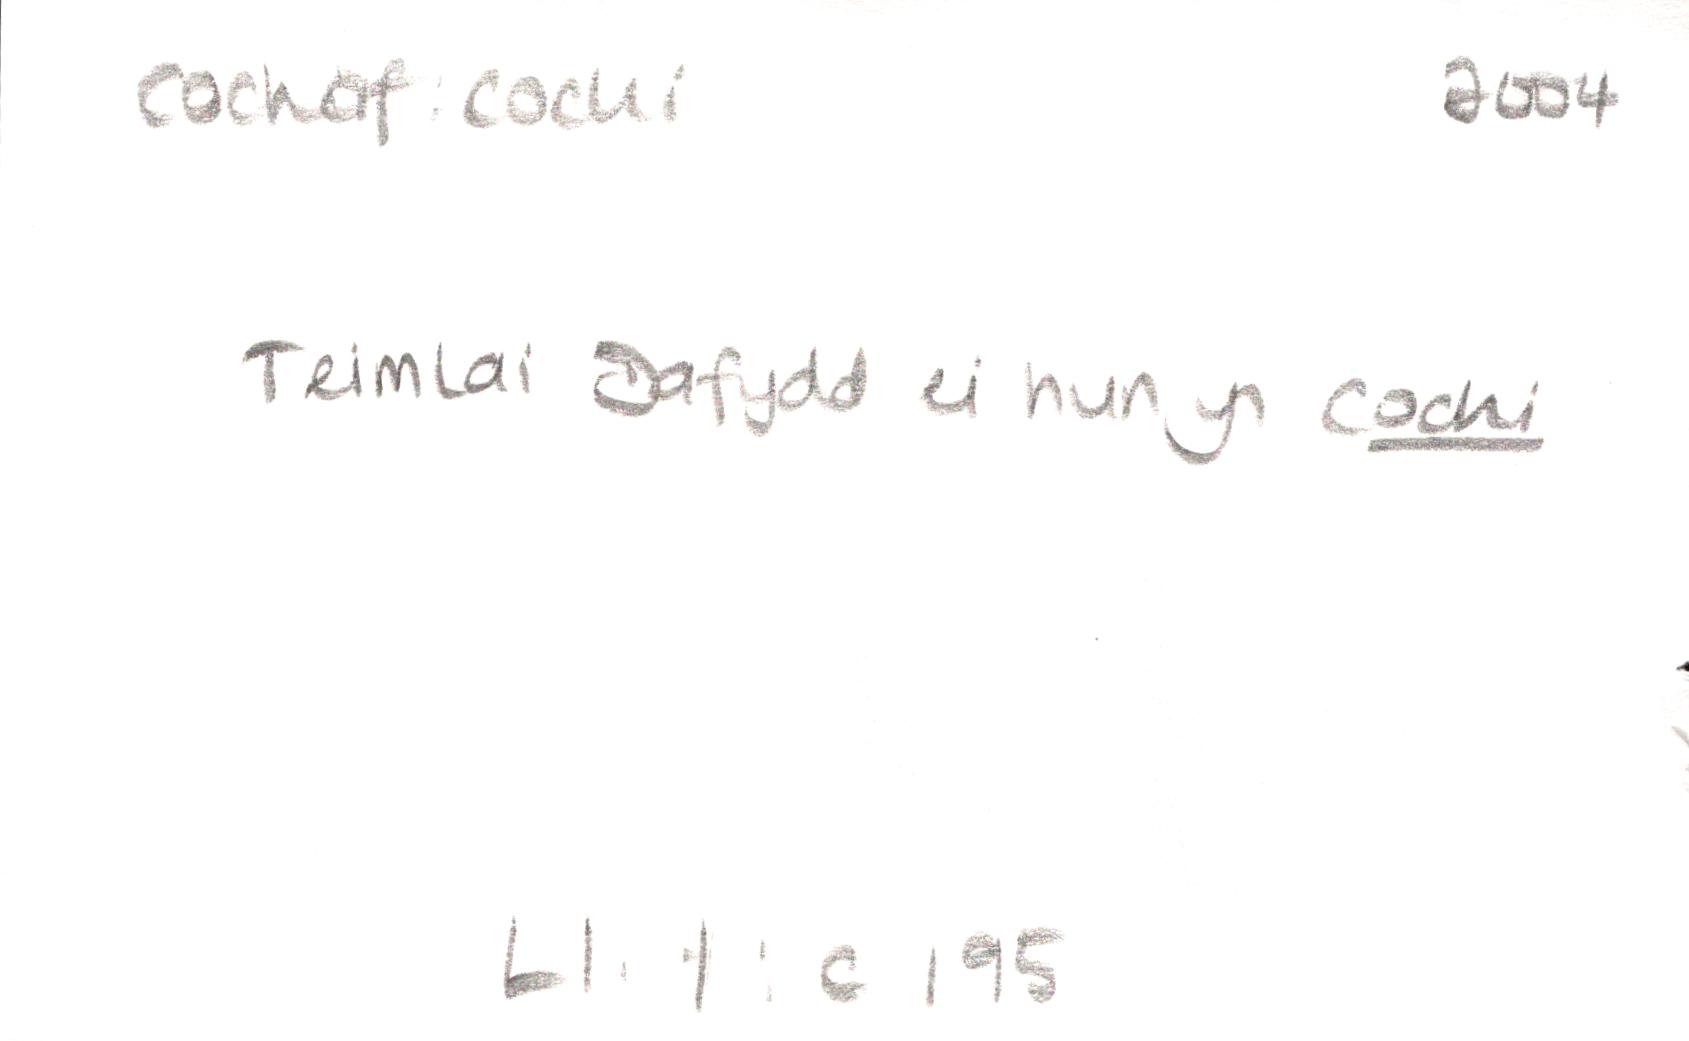 cochaf: cochi 2004
Teimlai Dafydd ei hun yn cochi
Ll. : c 195